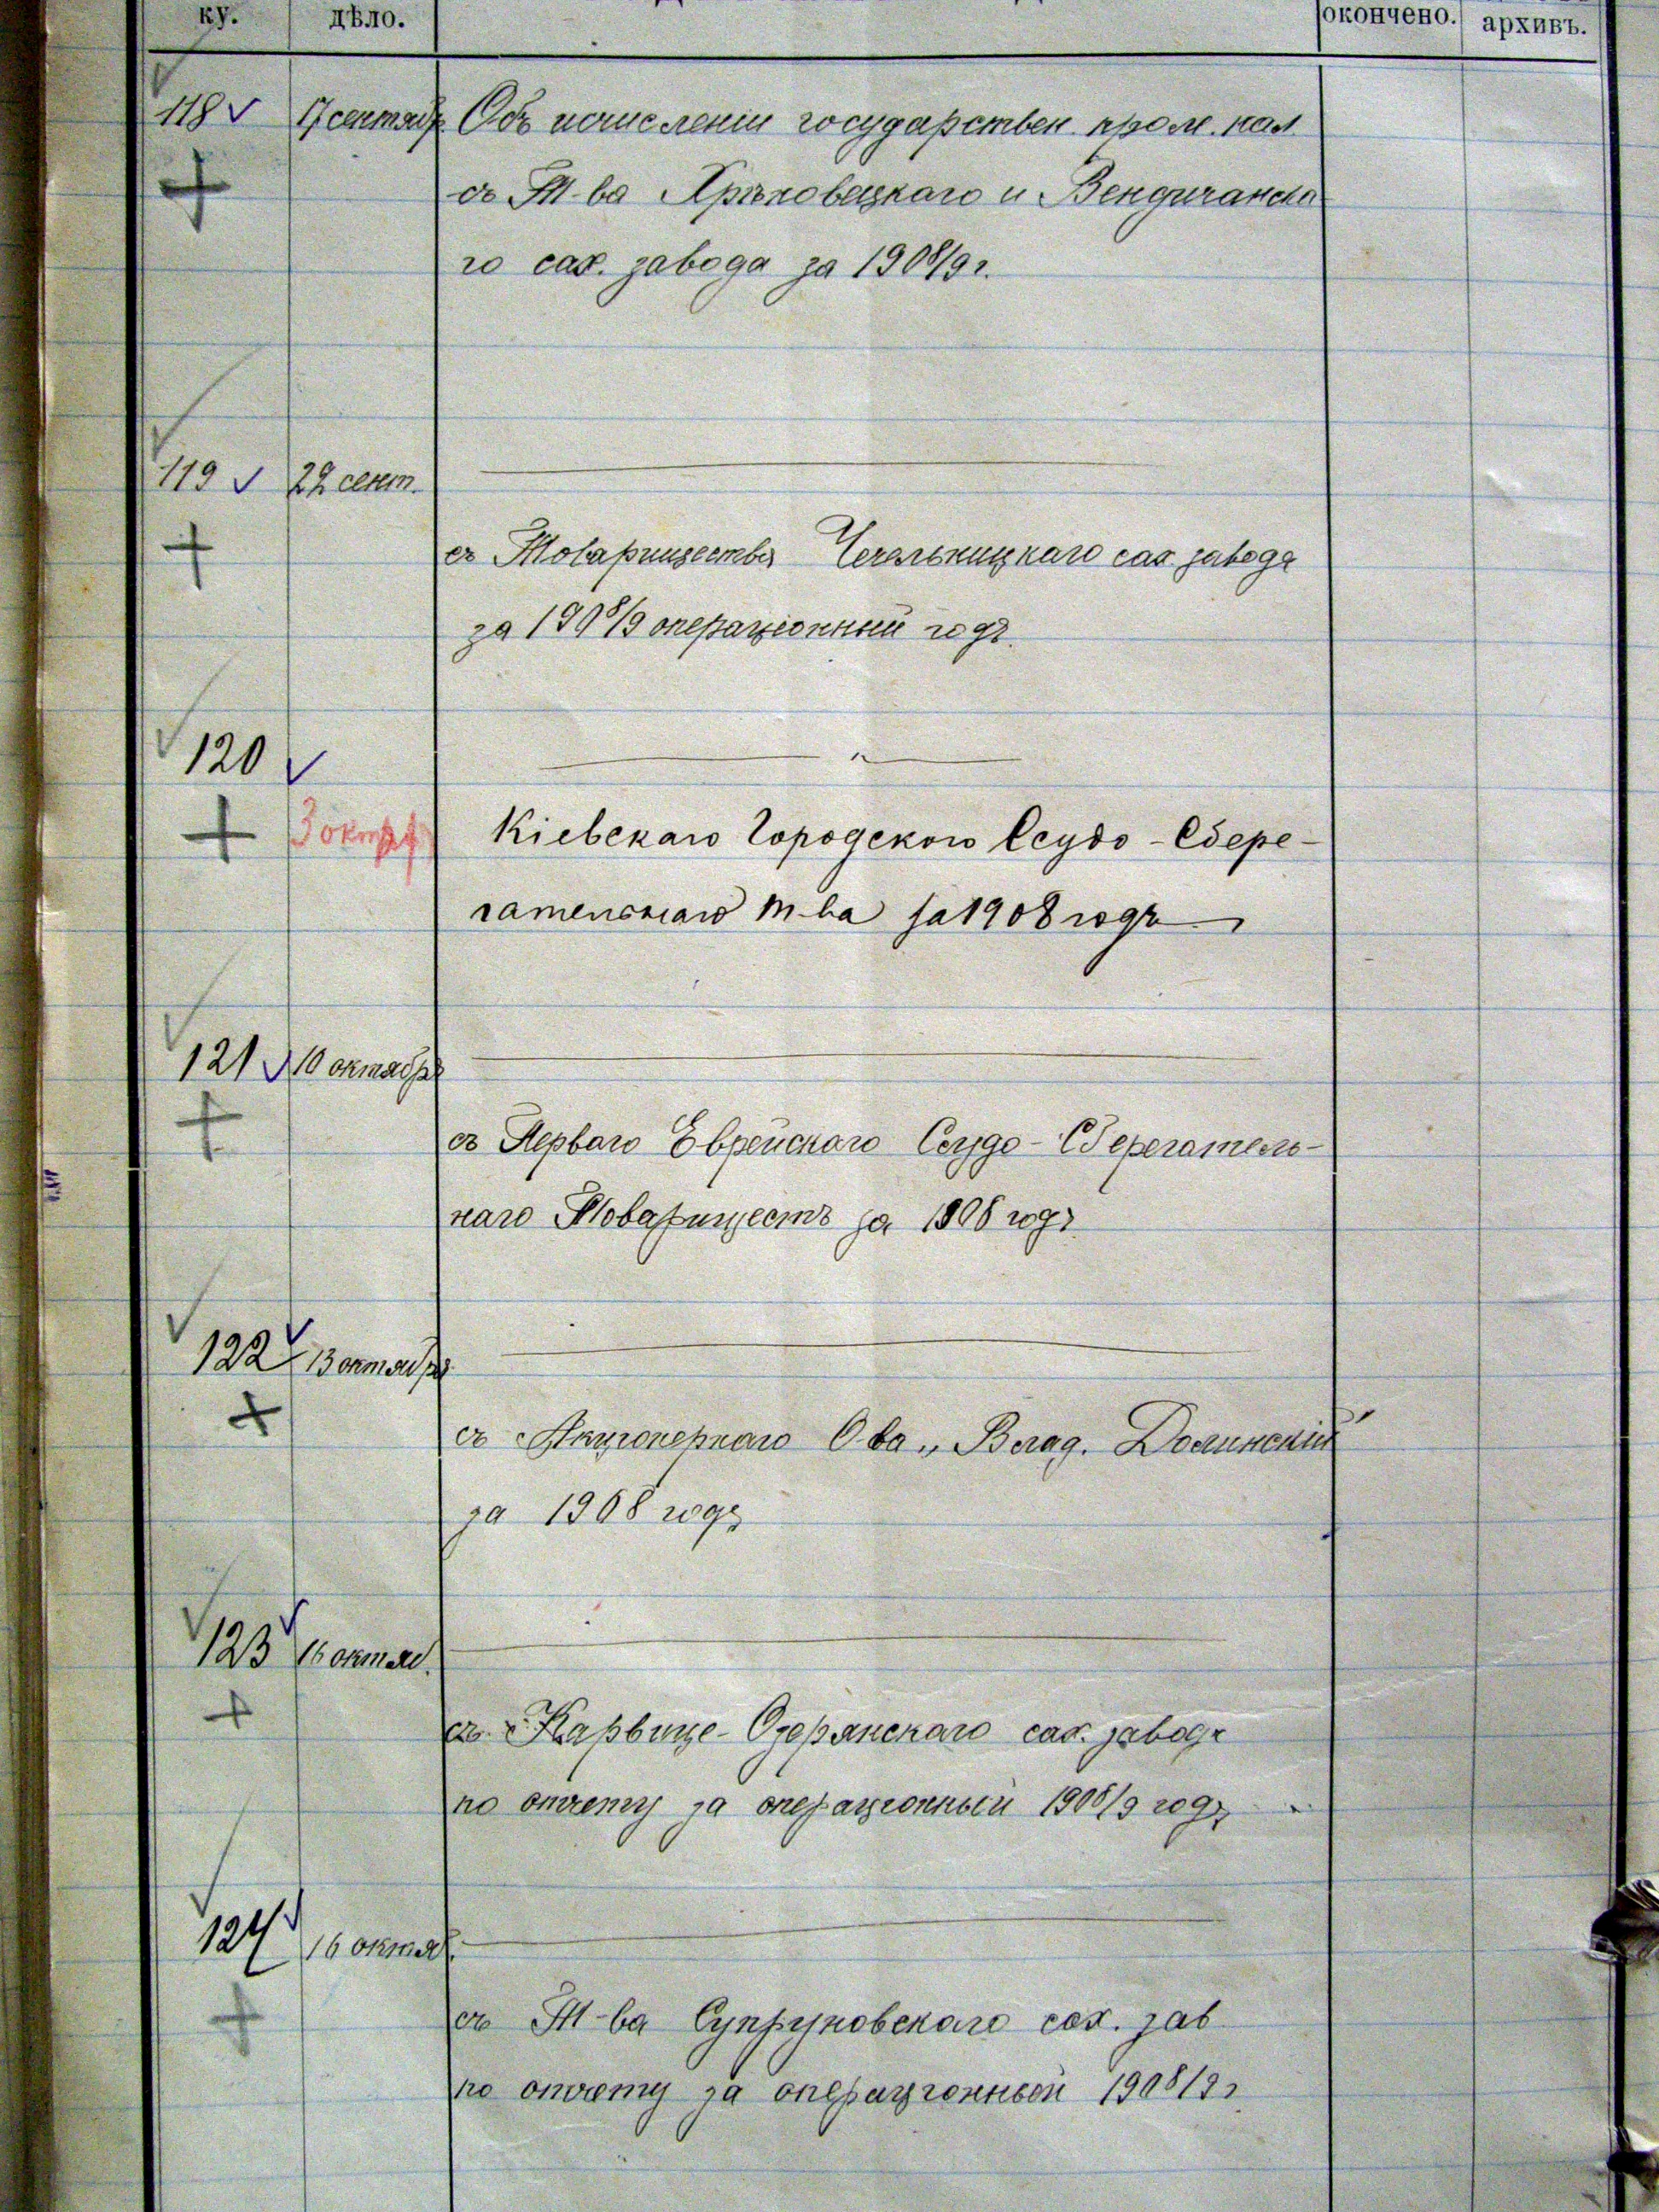 ку. дѣло. окончено. архивъ.
118 17 сентябр Объ исчисленіи государствен. пром. нал
съ Т-ва Яроховецкаго и Вендичанска
го сах. завода за 1908/9 г.
119 22 сент.
съ Товарищества Чечельницкаго сах. завода
за 1908/9 операціонный годъ.
120
3 октяб Кіевскаго Городского Ссудо-Сбере-
гательнаго т-ва за 1908 годъ
121 10 октября
съ Перваго Еврейскаго Ссудо-Сберегатель-
наго Товариществ за 1908 годъ
122 13 октября
съ Акціонернаго О-ва „Влад. Долинскій"
за 1908 годъ
123 16 октяб.
съ Карвице-Озерянскаго сах. завода
по отчету за операціонный 1908/9 годъ
124 16 октяб.
съ Т-ва Супруновскаго сах. зав
по отчету за операціонный 1908/9 г